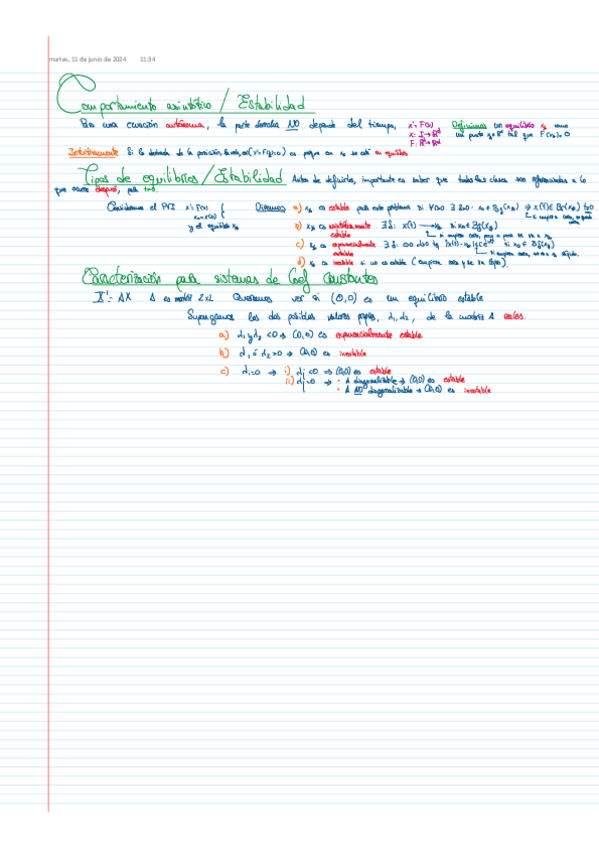 martes, 11 de junio de 2024 11:34
Comportamiento asintótico / Estabilidad
Para una ecuación autónoma, la parte derecha NO depende del tiempo, x'=F(x) Definimos un equilibrio x₀ como
x: I→ℝᵈ un punto x₀∈ℝᵈ tal que F(x₀)=0
F: ℝᵈ→ℝᵈ
Intuitivamente Si la derivada de la posición, (x'=F(x)=0) es porque en x₀ se está en equilibrio
Tipos de equilibrios / Estabilidad Antes de definirlos, importante es saber que todas las clases son referenciadas a lo
que ocurre después, para t>0.
Consideramos el PVI x'=F(x) Diremos a) x₀ es estable para este problema si
y el equilibrio x₀
b) x₀ es asintóticamente estable
c) x₀ es exponencialmente estable
d) x₀ es inestable si no es estable (empieza cerca y se va lejos)
Caracterización para sistemas de Coef constantes
X'=AX A es matriz 2x2 Queremos ver si (0,0) es un equilibrio estable
Supongamos los dos posibles valores propios, λ₁, λ₂, de la matriz A reales.
a) λ₁ y λ₂ <0 ⇒ (0,0) es exponencialmente estable
b) λ₁ ó λ₂ >0 ⇒ (0,0) es inestable
c) λᵢ=0 ⇒ i) λⱼ<0 ⇒ (0,0) es estable
ii) λⱼ=0 ⇒ · A diagonalizable → (0,0) es estable
· A NO diagonalizable → (0,0) es inestable